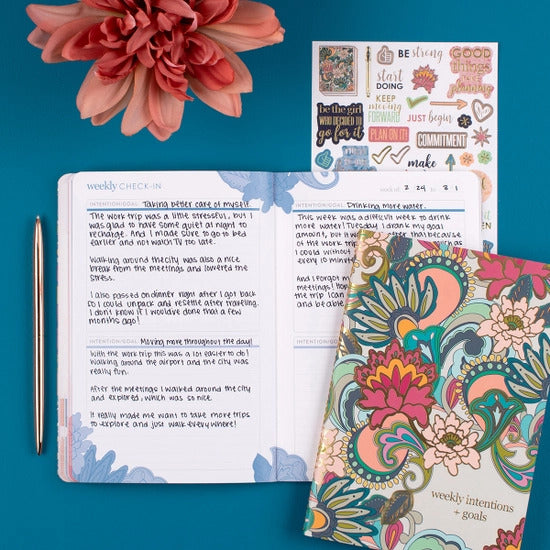 weekly CHECK-IN
INTENTION/GOAL: Taking better care of myself.
The work trip was a little stressful, but I
was glad to have some quiet at night to
recharge. And I made sure to go to bed
earlier and not watch TV too late.
Walking around the city was also a nice
break from the meetings and lowered the
stress.
I also passed on dinner right after I got back
so I could unpack and resettle after traveling.
I don't know if I would've done that a few
months ago!
INTENTION/GOAL: Moving more throughout the day!
With the work trip this was a lot easier to do!
Walking around the airport and the city was
really fun.
After the meetings I walked around the city
and explored, which was so nice.
It really made me want to take more trips
to explore and just walk everywhere!
week of: 2 29 to 3 1
INTENTION/GOAL: Drinking more water.
This week was a difficult week to drink
more water! Tuesday I drank my goal
amount, but it was after that because
of the work trip
I could without
every 10 minut
And I forgot m
meetings! Hop
the trip I can
and be able
INTENTION/GOAL:
BE strong
start
DOING
GOOD
things
are
planning
be the girl
WHO DECIDED TO
go for it
KEEP
moving
FORWARD
JUST begin
PLAN ON IT!
COMMITMENT
make
weekly intentions
+ goals